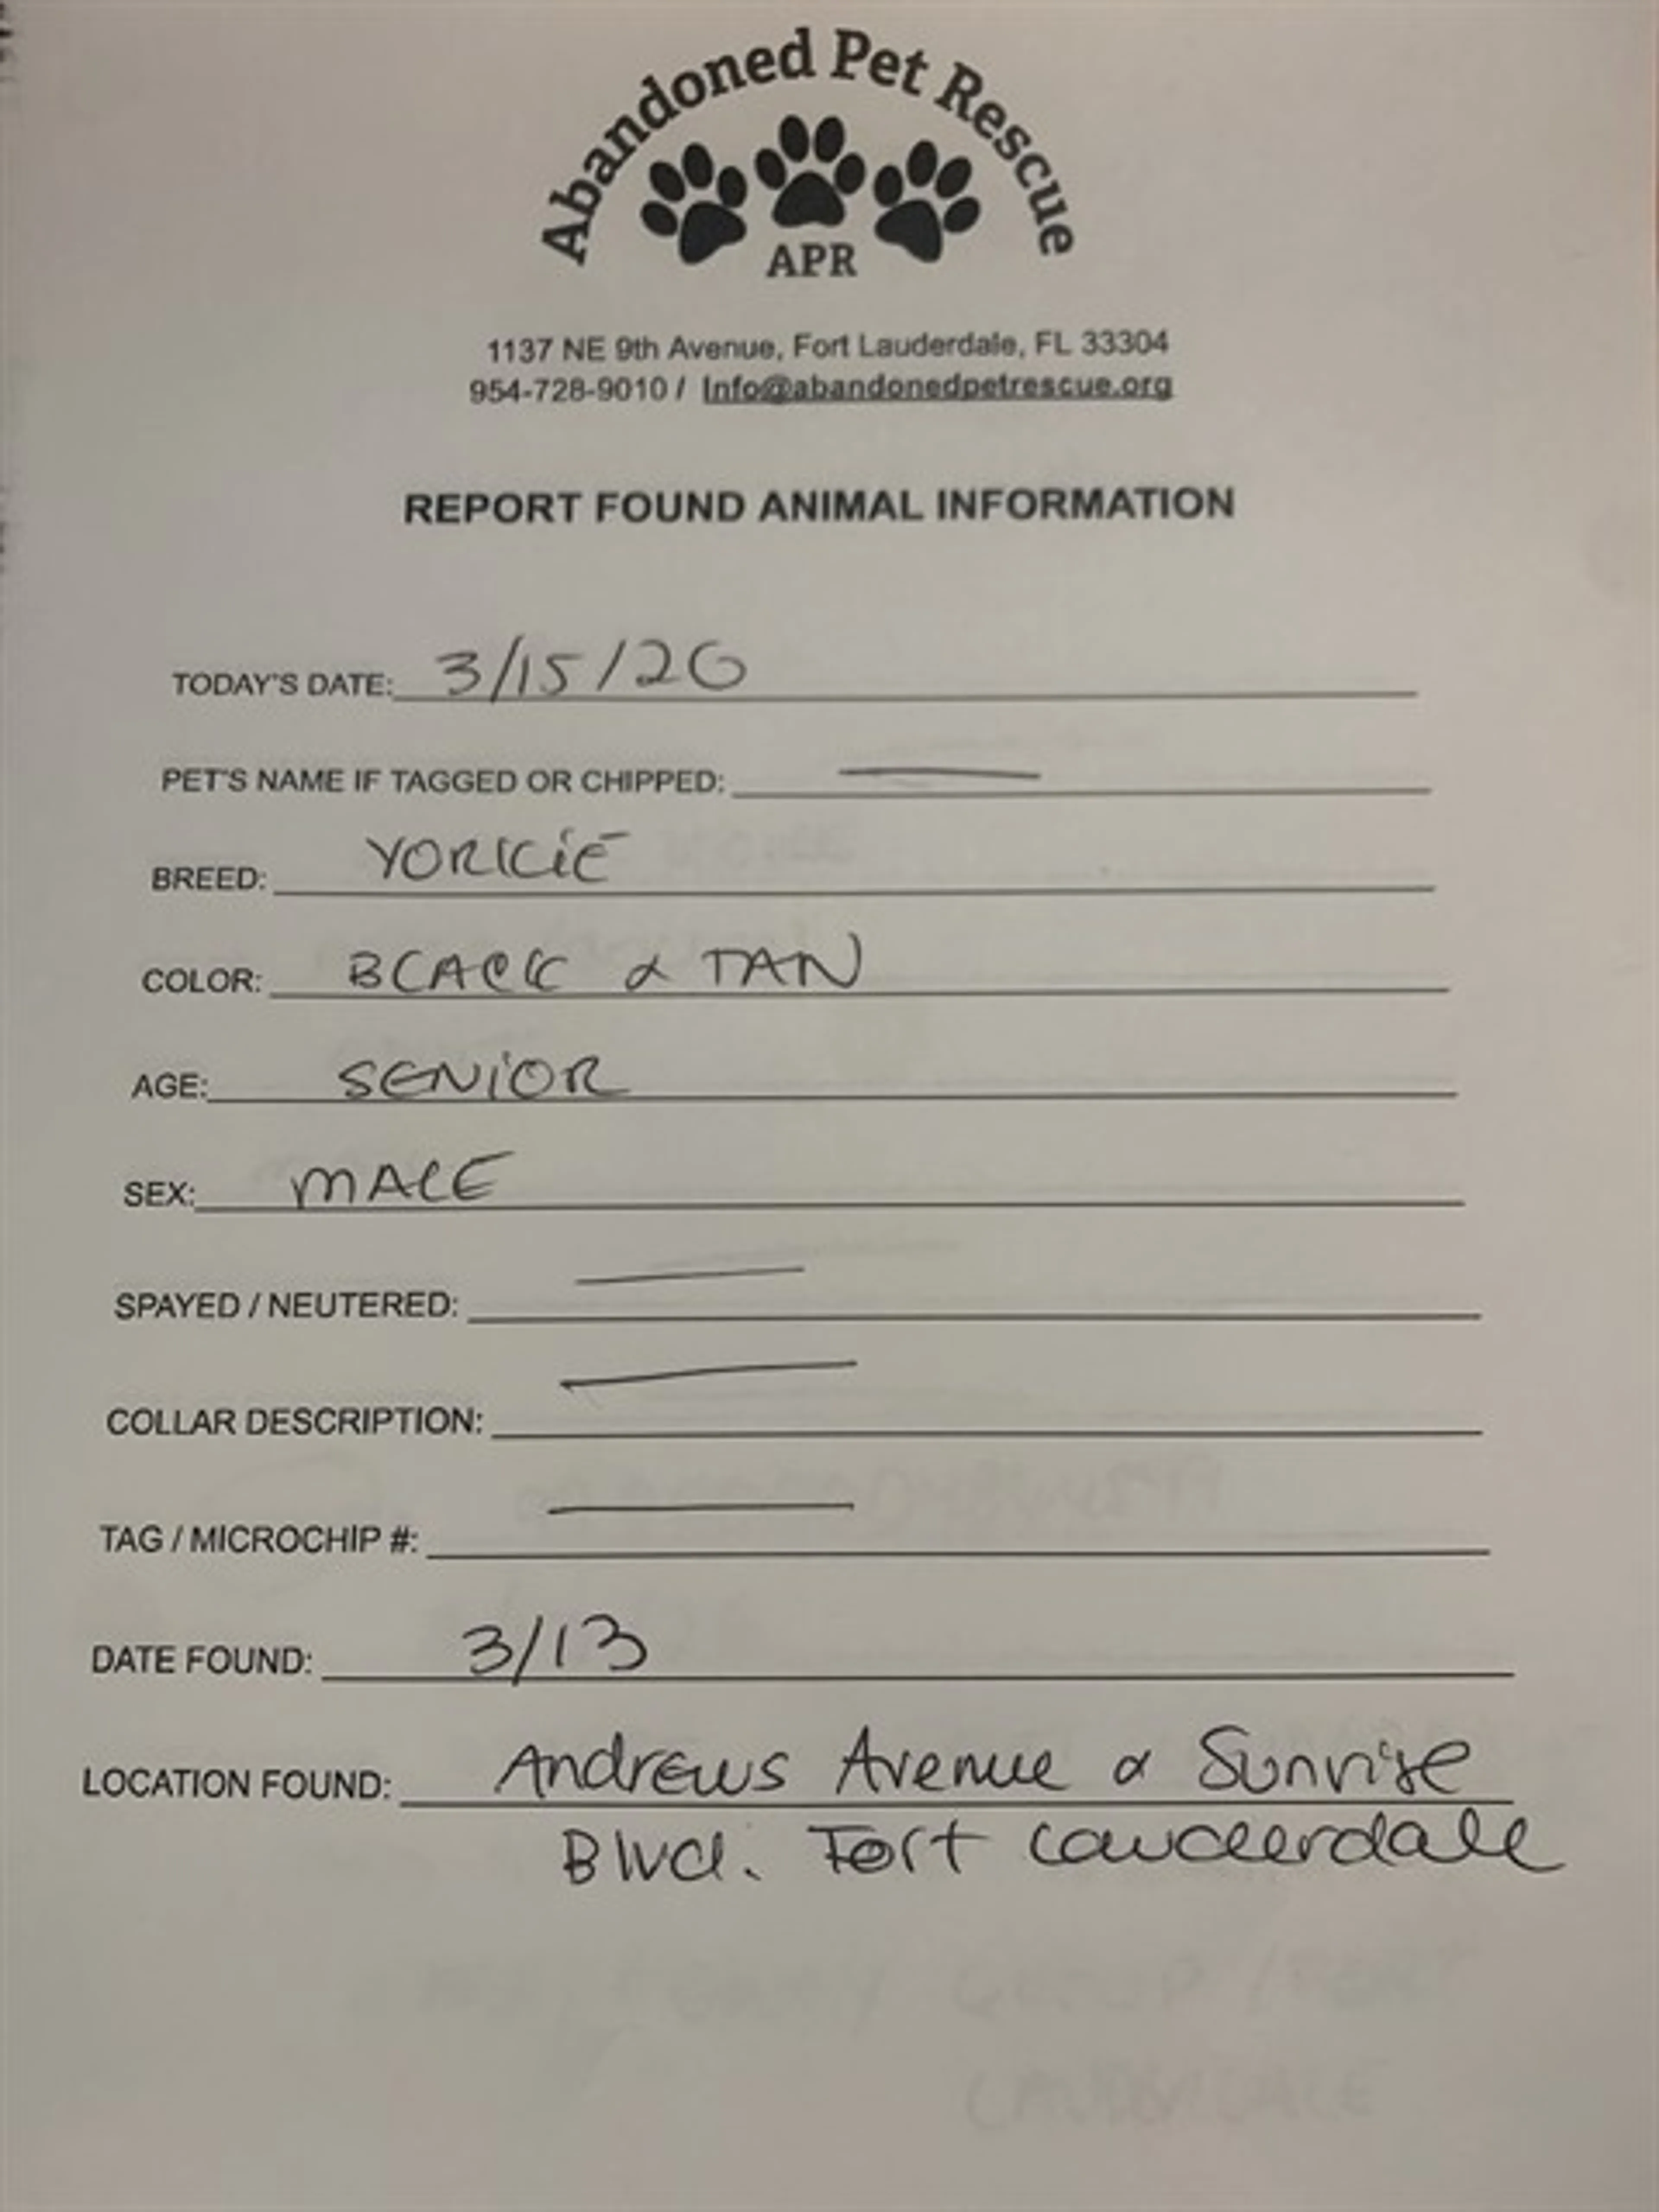 Abandoned Pet Rescue
APR
1137 NE 9th Avenue, Fort Lauderdale, FL 33304
954-728-9010 / Info@abandonedpetrescue.org
REPORT FOUND ANIMAL INFORMATION
TODAY'S DATE: 3/15/20
PET'S NAME IF TAGGED OR CHIPPED: —
BREED: YORKIE
COLOR: BLACK & TAN
AGE: SENIOR
SEX: MALE
SPAYED / NEUTERED: —
COLLAR DESCRIPTION: —
TAG / MICROCHIP #: —
DATE FOUND: 3/13
LOCATION FOUND: Andrews Avenue & Sunrise
Blvd. Fort Lauderdale